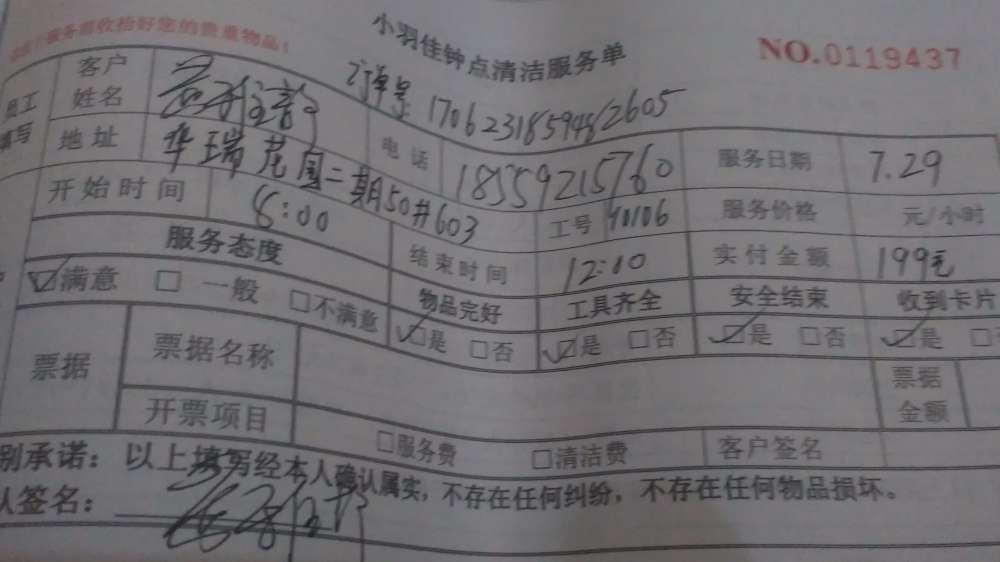 服务前收拾好您的贵重物品！
小羽佳钟点清洁服务单
NO.0119437
订单号：1706231859482605
员工填写
客户姓名
电话 18559215760
服务日期 7.29
地址 华瑞花园二期50#603
工号 40106
服务价格 元/小时
开始时间 8:00
结束时间 12:00
实付金额 199元
服务态度
物品完好 工具齐全 安全结束 收到卡片
满意 一般 不满意 是 否 是 否 是 否 是
票据 票据名称 票据金额
开票项目 服务费 清洁费 客户签名
别承诺：以上填写经本人确认属实，不存在任何纠纷，不存在任何物品损坏。
签名：